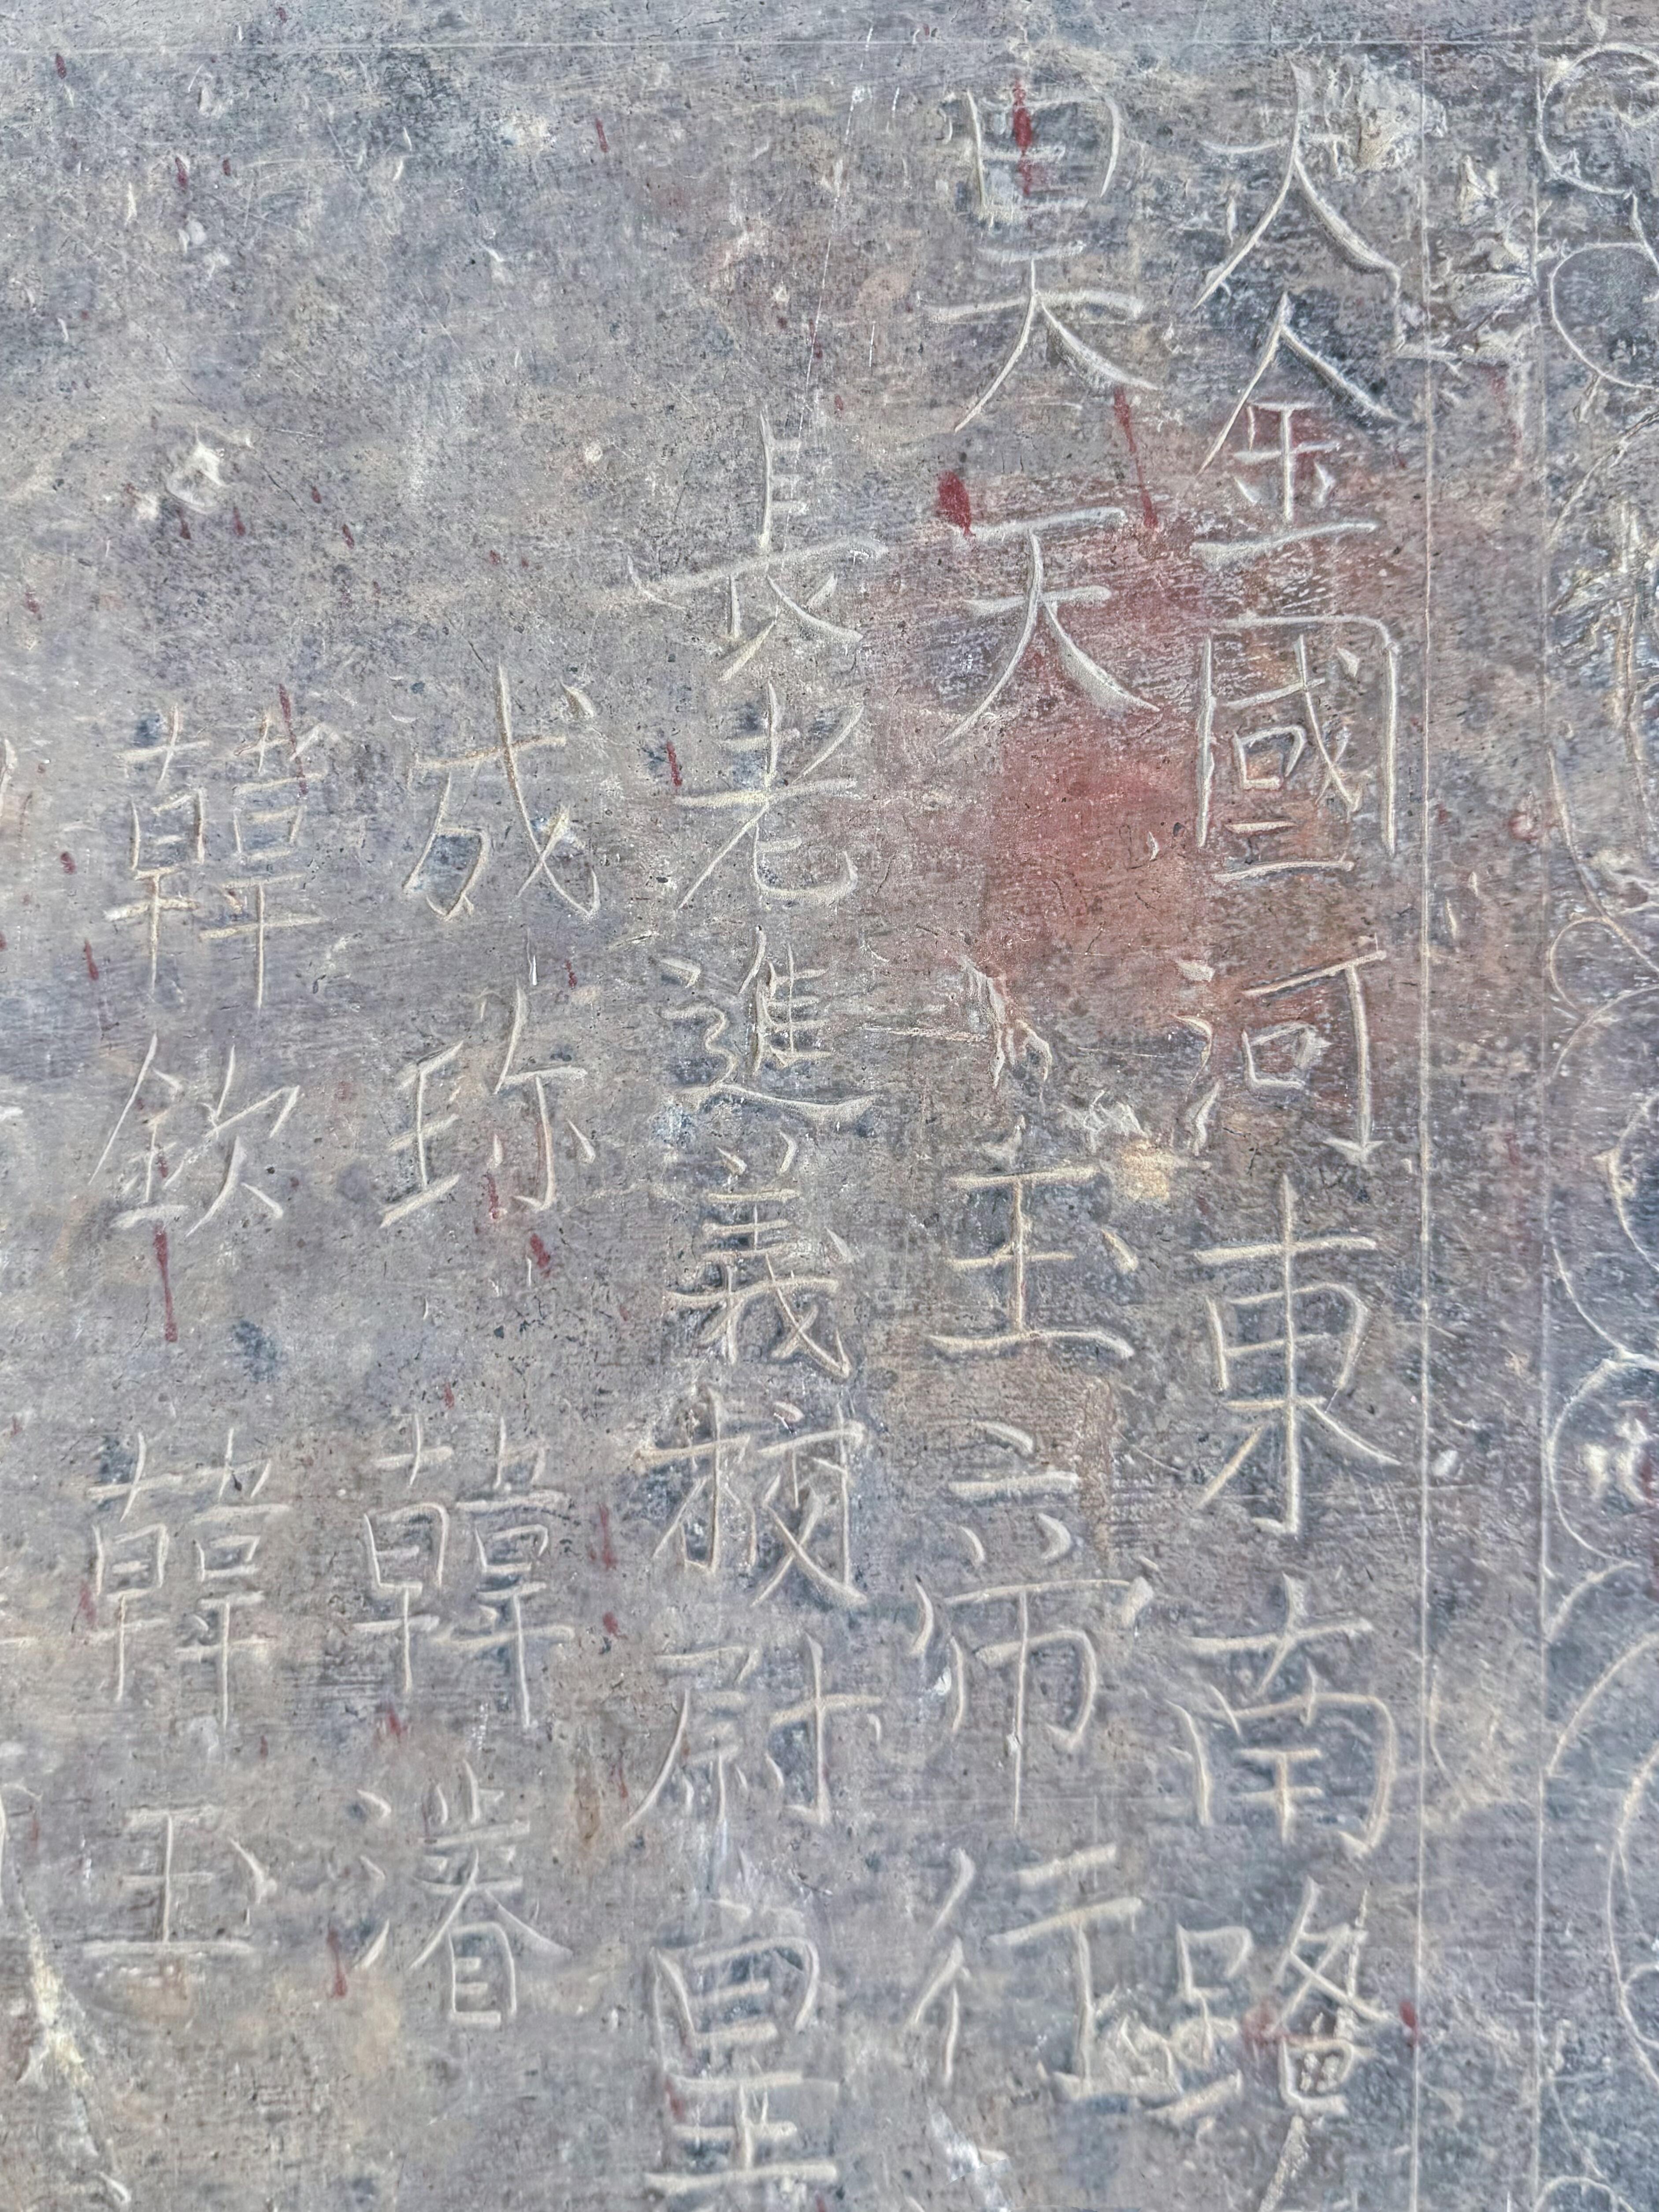 大金國河東南路
昊天玉帝行
長老進義校尉皇
成珎韓濬
韓欽韓玉